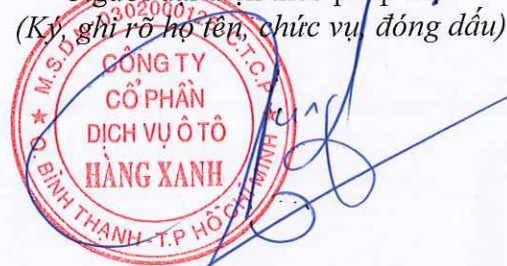 (Ký, ghi rõ họ tên, chức vụ, đóng dấu)
CÔNG TY
CỔ PHẦN
DỊCH VỤ Ô TÔ
HÀNG XANH
Q. BÌNH THẠNH - T.P HỒ CHÍ MINH